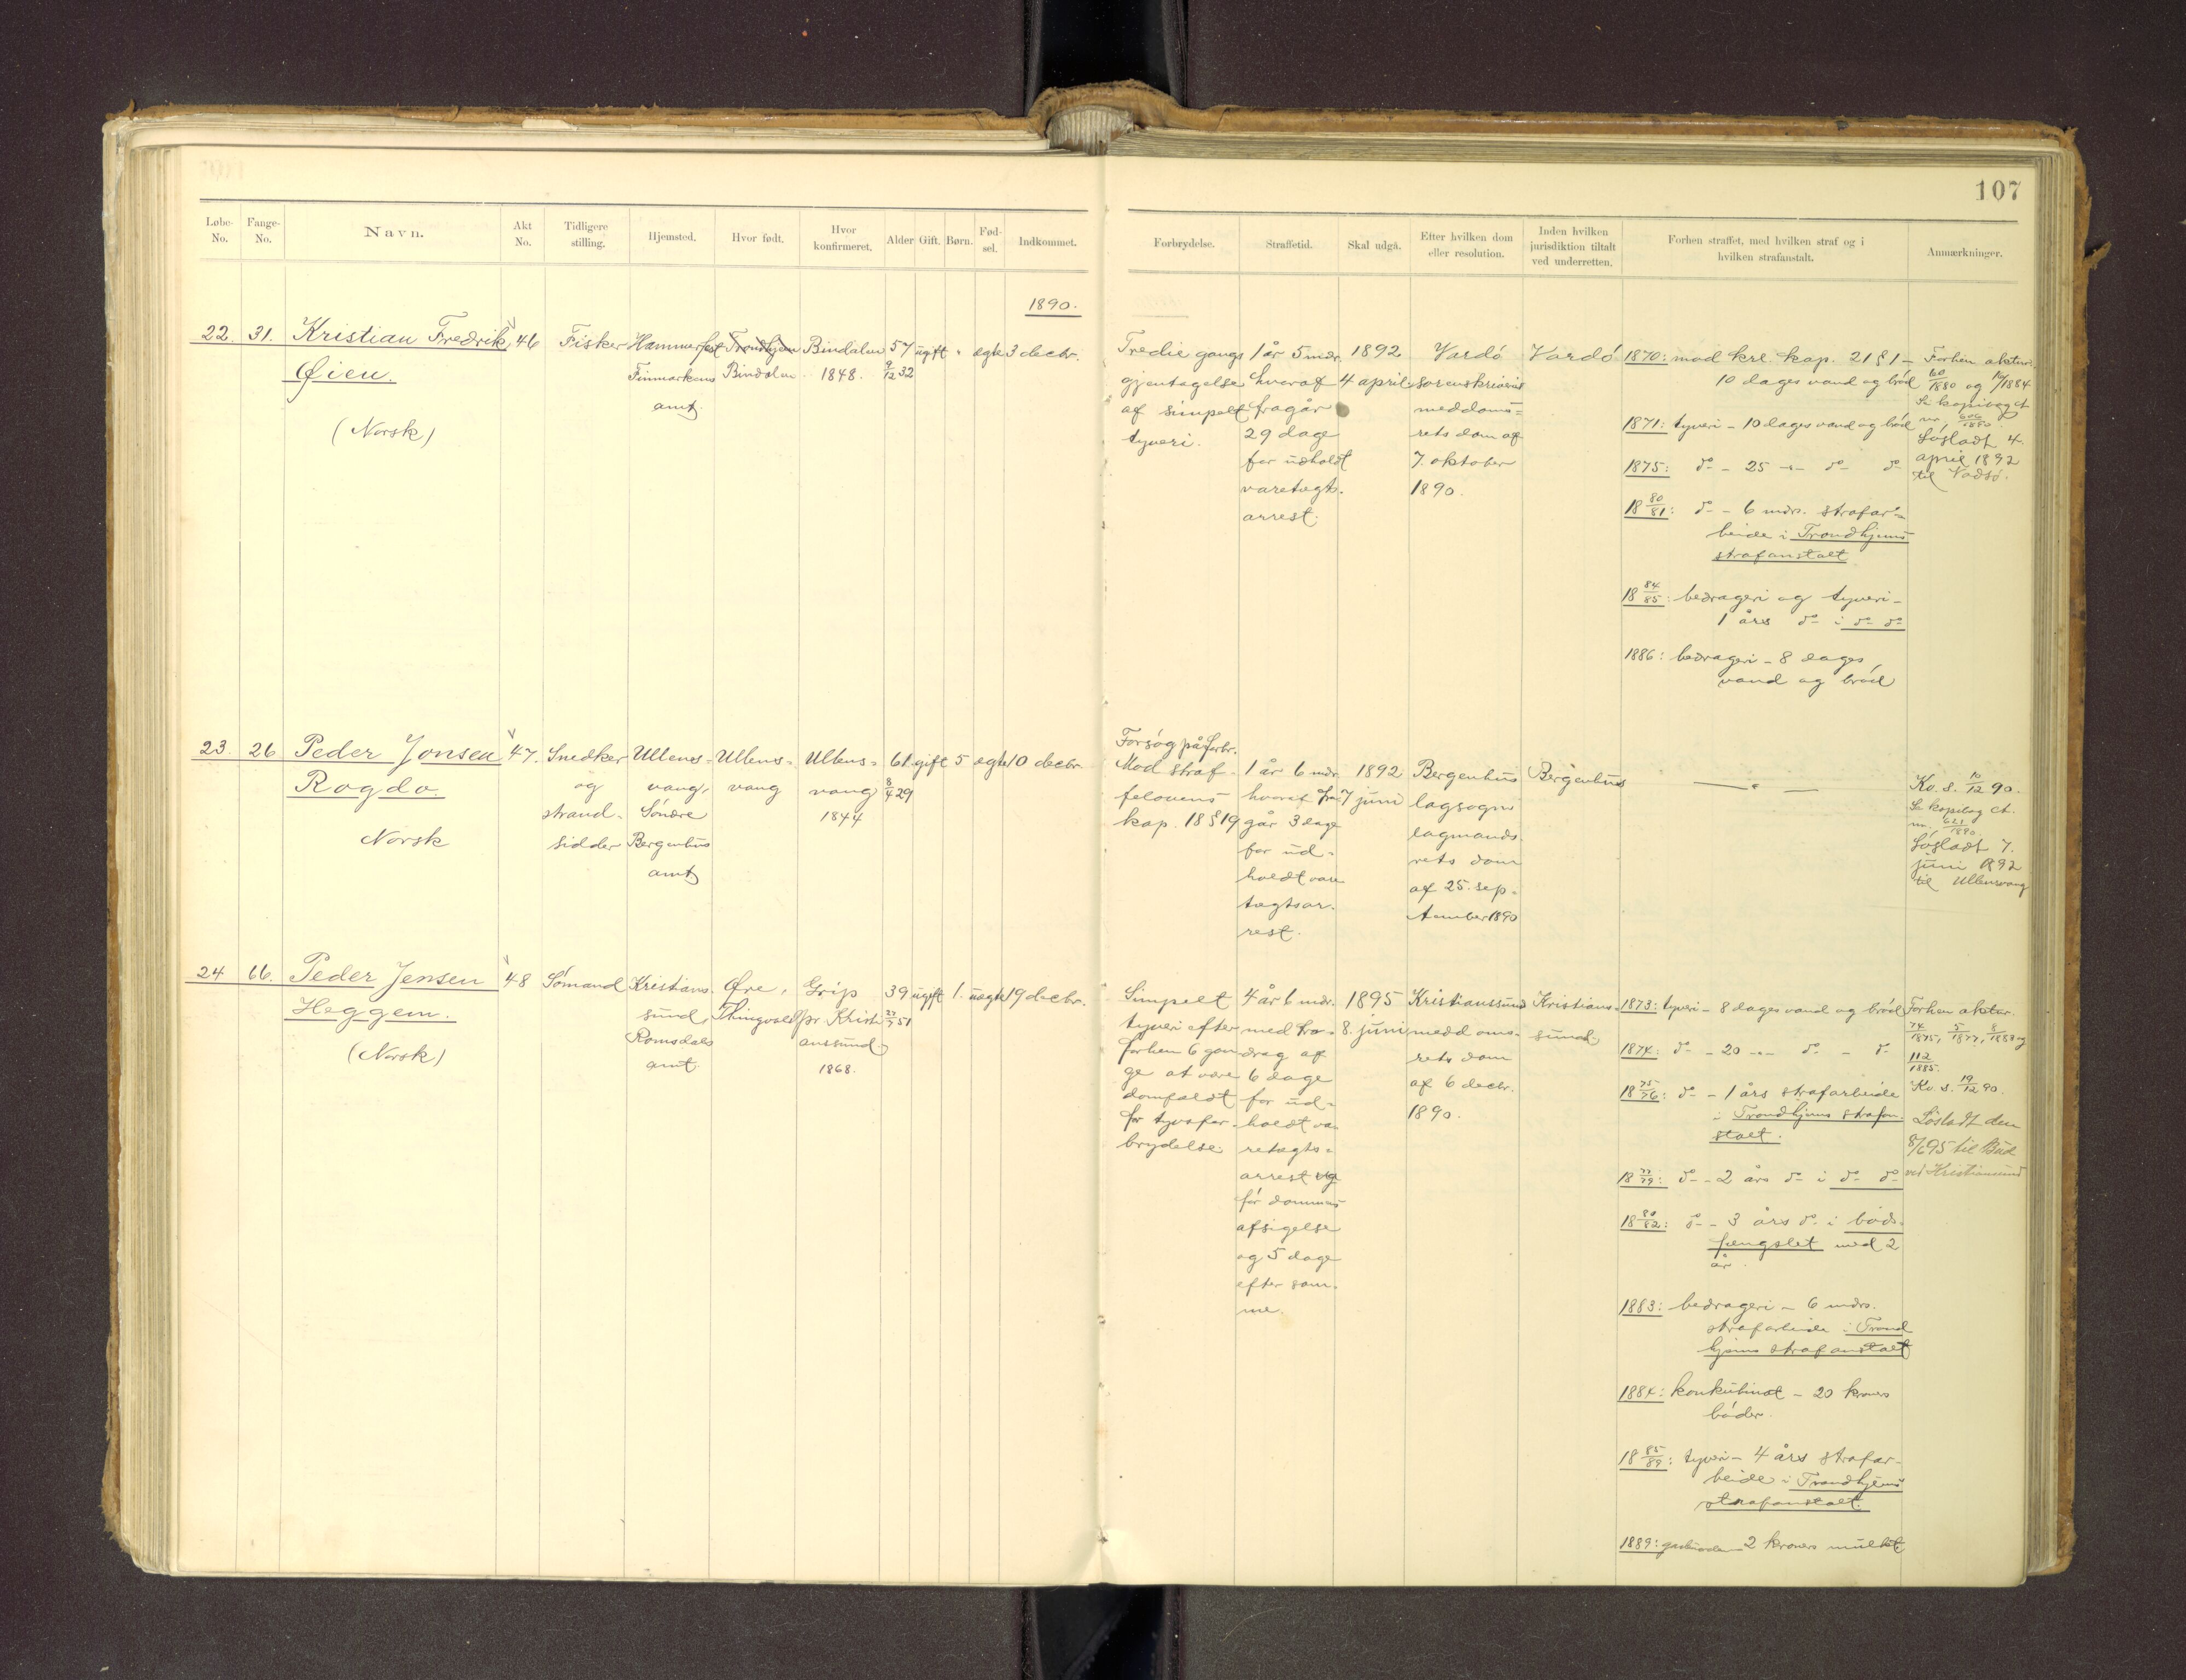 107
Løbe-No. Fange-No. Navn. Akt No. Tidligere stilling. Hjemsted. Hvor født. Hvor konfirmeret. Alder Gift. Børn. Fød-sel. Indkommet.
Forbrydelse. Straffetid. Skal udgå. Efter hvilken dom eller resolution. Inden hvilken jurisdiktion tiltalt ved underretten. Forhen straffet, med hvilken straf og i hvilken strafanstalt. Anmærkninger.
1890.
22. 31. Kristian Fredrik
Øien.
(Norsk)
46
Fisker
Hammerfest
Finmarkens
amt.
Trondhjem
Bindalen
Bindalen
1848.
57
9/12 32
ugift
"
ægte
3 decbr.
Tredie gangs
gjentagelse
af simpelt
tyveri.
1 år 5 mdr.
hvoraf
fragår
29 dage
for udholdt
varetægts-
arrest.
1892
4 april
Vardö
sorenskriveris
meddoms=
rets dom af
7. oktober
1890.
Vardö
1870: mod krl. kap. 21 § 1 -
10 dages vand og bröd
1871: tyveri - 10 dages vand og bröd
1875: do - 25 -"- do - do
18 80/81: do - 6 mdrs. strafar=
beide i Trondhjems
strafanstalt
18 84/85: bedrageri og tyveri -
1 års do i do do
1886: bedrageri - 8 dages
vand og bröd
Forhen aktnr.
60/1880 og 16/1884
Se kopibog ct
nr. 606/1890
Løsladt 4.
april 1892
til Vadsö.
23. 26 Peder Jonsen
Rogdo.
Norsk
47.
Snedker
og
strand-
sidder
Ullens-
vang,
Söndre
Bergenhus
amt
Ullens-
vang
Ullens-
vang
1844
61
8/4 29
gift
5
ægte
10 decbr.
Forsög på forbr.
Mod straf-
felovens
kap. 18 § 19
1 år 6 mdr.
hvoraf fra-
går 3 dage
for ud-
holdt vare
tægtsar-
rest.
1892
7 juni
Bergenhus
lagsogns
lagmands-
rets dom
af 25. sep-
tember 1890
Bergenhus
— " —
Kv. s. 10/12 90.
Se kopibog ct.
nr. 621/1890.
Løsladt 7.
juni 1892
til Ullensvang
24 66. Peder Jensen
Heggem.
(Norsk)
48
Sömand
Kristians-
sund,
Romsdals
amt.
Øre,
Thingvold
Grip
pr. Kristi-
anssund
1868.
39
27/7 51
ugift
1.
uægte
19 decbr.
Simpelt
tyveri efter
forhen 6 gan-
ge at være
domfældt
for tyvsfor-
brydelse.
4 år 6 mdr.
med fra-
drag af
6 dage
for ud-
holdt va-
retægts-
arrest og
för dommens
afsigelse
og 5 dage
efter sam-
me.
1895
8. juni
Kristianssund
meddoms-
rets dom
af 6 decbr.
1890.
Kristians-
sund
1873: tyveri - 8 dages vand og bröd
1874: do - 20 -"- do - do
18 75/76: do - 1 års strafarbeide
i Trondhjems strafan-
stalt.
18 77/79: do - 2 års do i do do
18 80/82: do - 3 års do i bods-
fængslet med 2
år.
1883: bedrageri - 6 mdrs.
strafarbeide i Trond
hjems strafanstalt
1884: konkubinat - 20 kroners
böder.
18 85/89: tyveri - 4 års strafar-
beide i Trondhjems
strafanstalt.
1889: 2 kroners mulkt.
Forhen aktnr.
74/1875, 5/1877, 8/1883 og
112/1885.
Kv. s. 19/12 90.
Løsladt den
8/6 95 til Bud
ved Kristianssund